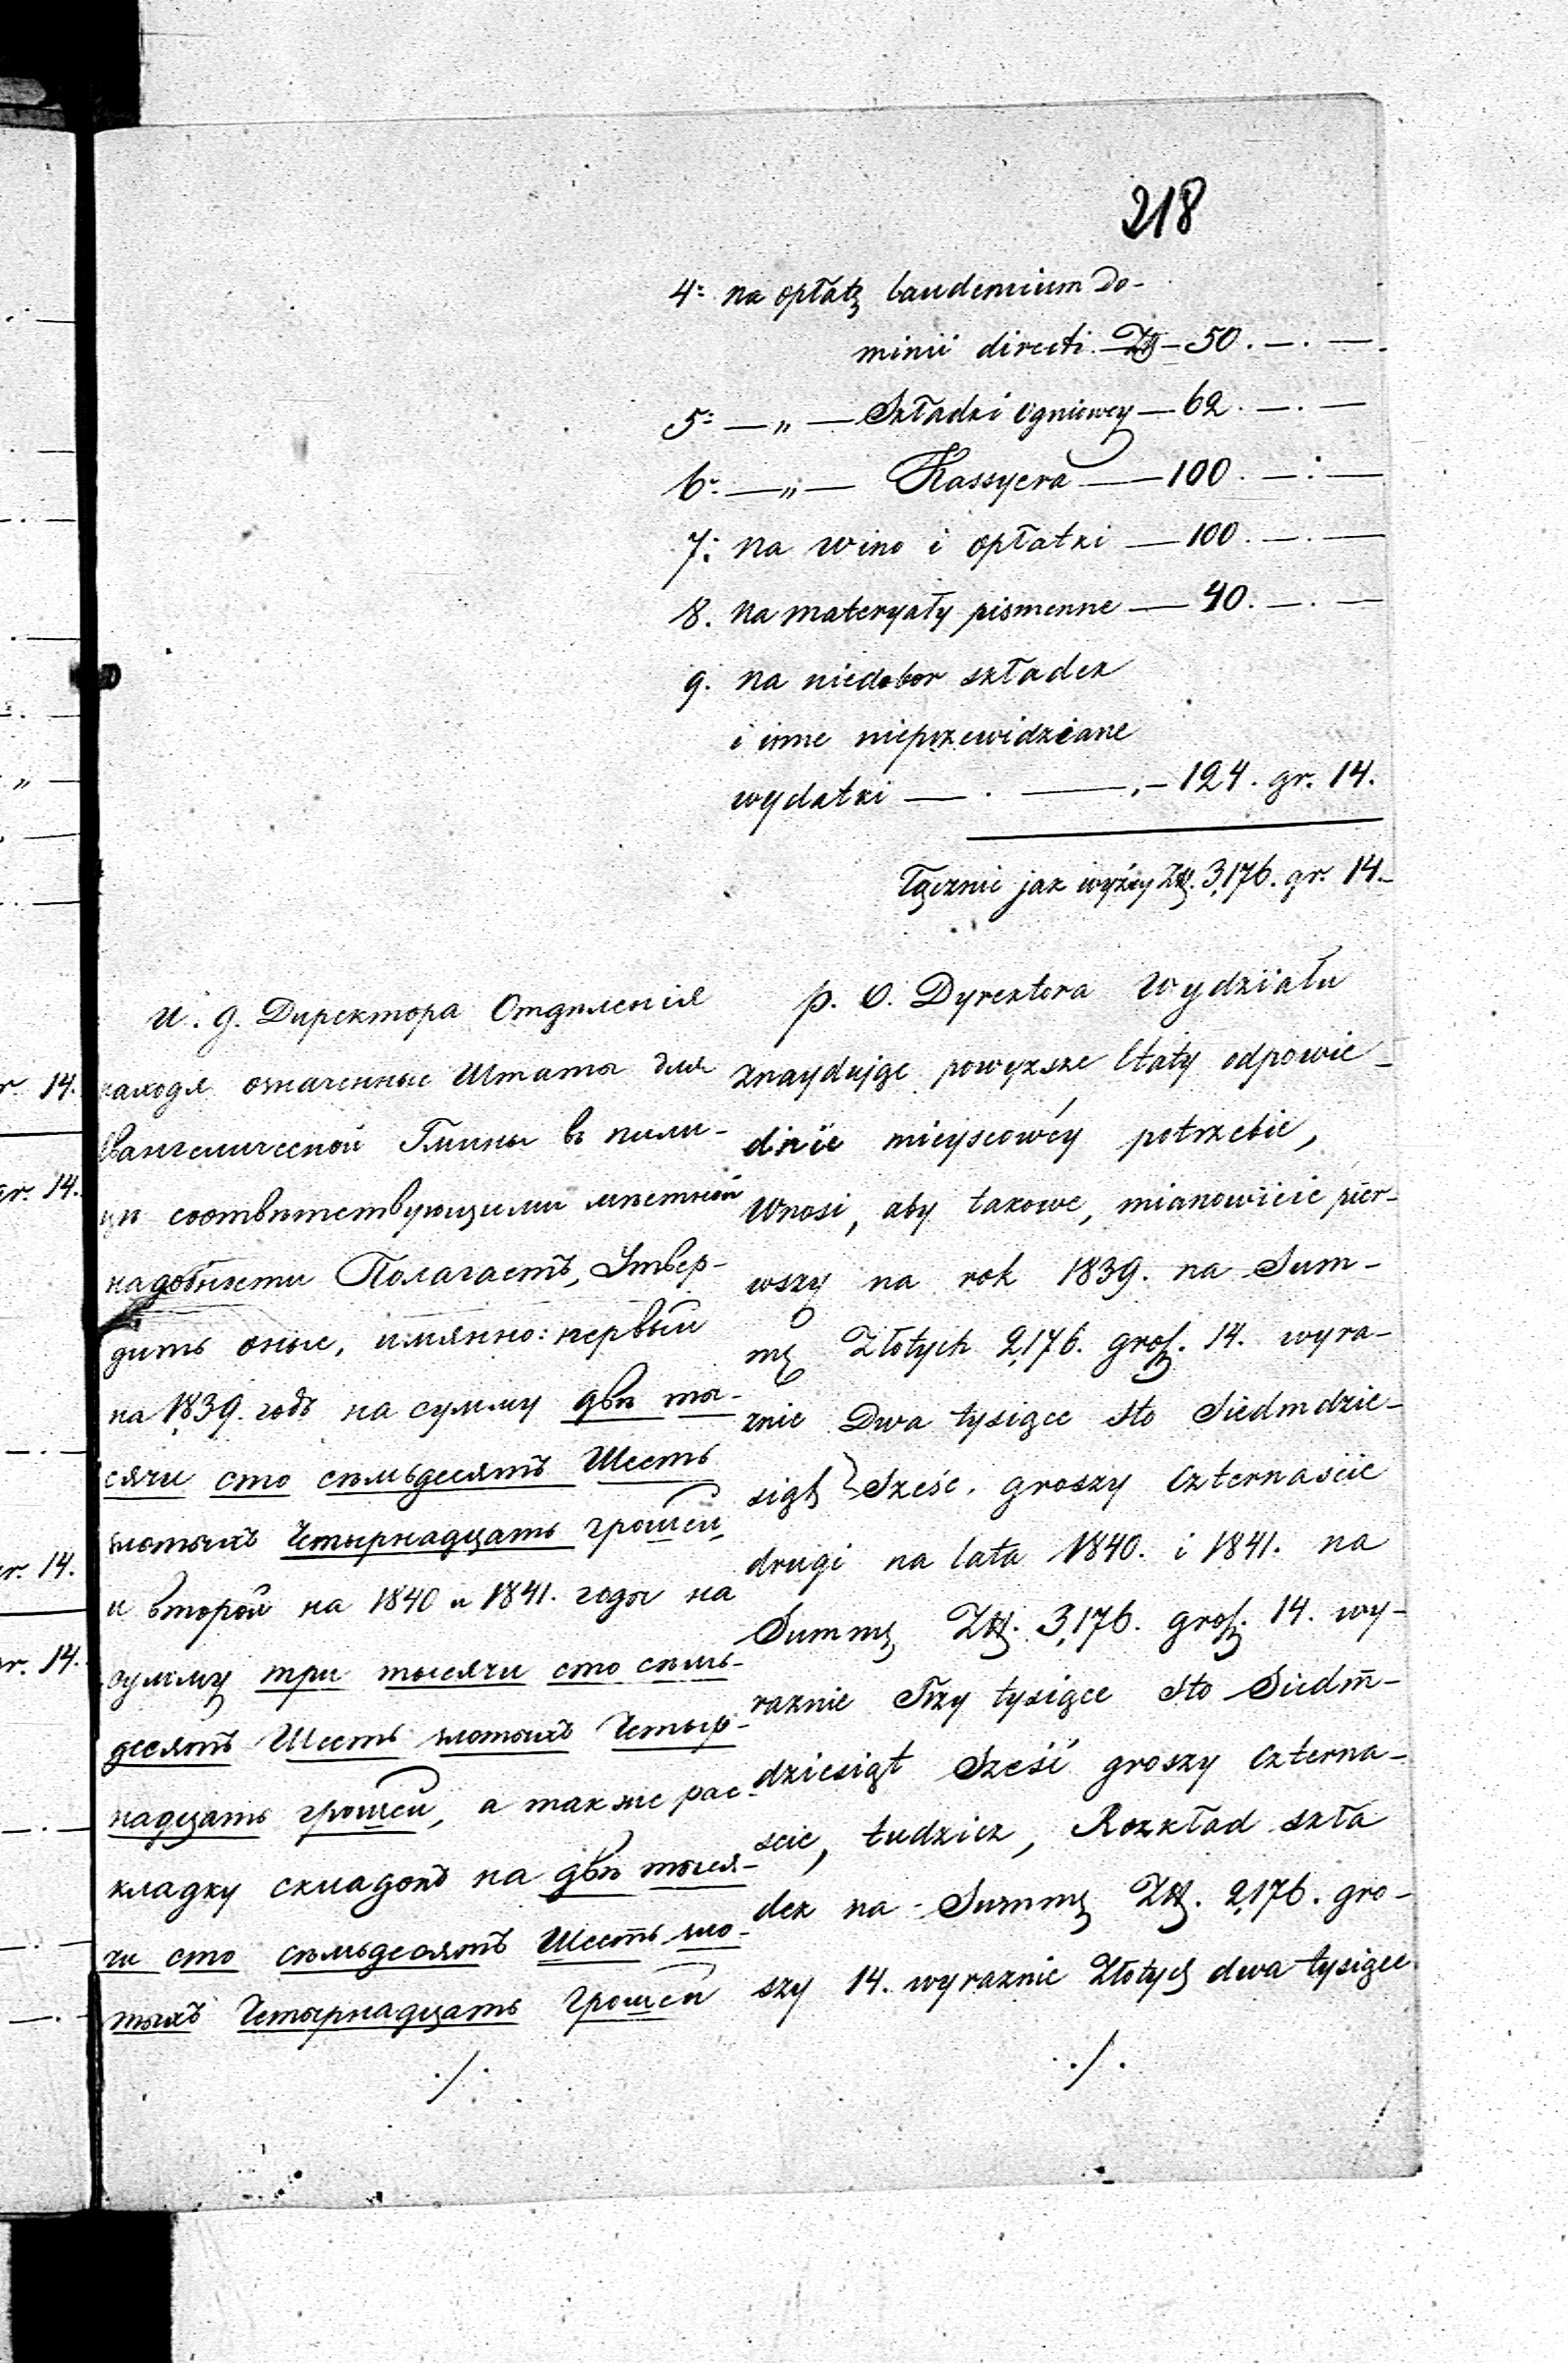 218
4: na opłatę laudemium do-
minii directi. Zł – 50. –. –.
5: – „ – Składki ogniowey – 62. –. –
6: – „ – Kassyera – 100. –. –
7: na wino i opłatki – 100. –. –
8. na materyały pismenne – 40. –. –
9. na niedobor składek
i inne nieprzewidziane
wydatki – . – . – 124. gr. 14.
łącznie jak wyżey Zł. 3,176. gr. 14.
И. д. Директора Отдѣленія
находя означенные Штаты для
Евангелической Гмины въ
соотвѣтствующими мѣстной
надобности Полагаетъ, Утвер-
дить оные, имянно: первый
на 1839. годъ на сумму двѣ ты-
сячи сто семьдесятъ Шесть
злотыхъ Четырнадцать грошей,
и второй на 1840 и 1841. годы на
сумму три тысячи сто семь-
десятъ Шесть злотыхъ Четыр-
надцать грошей, а также рас-
кладку складокъ на двѣ тыся-
чи сто семьдесятъ Шесть зло-
тыхъ Четырнадцать Грошей
./.
p. O. Dyrektora Wydziału
znayduiąc powyższe Etaty odpowie-
dnie mieyscowéy potrzebie,
Wnosi, aby takowe, mianowicie pier-
wszy na rok 1839. na Sum-
mę Złotych 2,176. gros. 14. wyra-
znie Dwa tysiące Sto Siedmdzie-
siąt Sześć. groszy Czternaście
drugi na lata 1840. i 1841. na
Summę Zł. 3,176. gros. 14. wy-
raznie Trzy tysiące Sto Siedm-
dziesiąt Sześć groszy Czterna-
scie, tudzież, Rozkład skła
dek na Summę Zł. 2,176. gro-
szy 14. wyraznie Złotych dwa tysiące
./.
r. 14.
gr. 14.
gr. 14.
gr. 14.